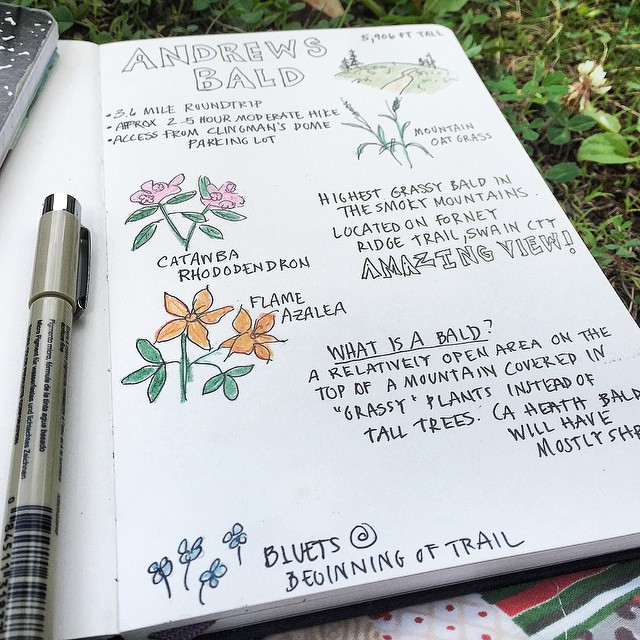 ANDREWS
BALD
5,906 FT TALL
• 3.6 MILE ROUNDTRIP
• APPROX 2-5 HOUR MODERATE HIKE
• ACCESS FROM CLINGMAN'S DOME
PARKING LOT
MOUNTAIN
OAT GRASS
HIGHEST GRASSY BALD IN
THE SMOKY MOUNTAINS.
LOCATED ON FORNEY
RIDGE TRAIL, SWAIN CTY
AMAZING VIEW!
CATAWBA
RHODODENDRON
FLAME
AZALEA
WHAT IS A BALD?
A RELATIVELY OPEN AREA ON THE
TOP OF A MOUNTAIN COVERED IN
"GRASSY" PLANTS INSTEAD OF
TALL TREES. (A HEATH BALD
WILL HAVE
MOSTLY SHR
BLUETS @
BEGINNING OF TRAIL